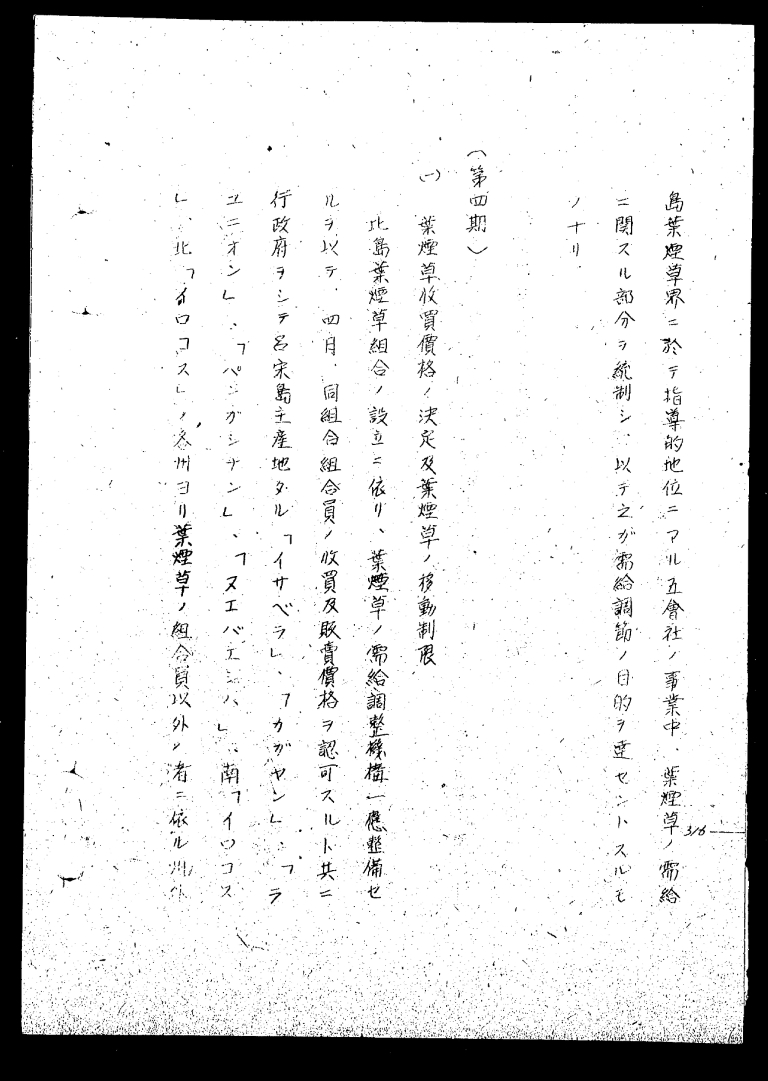 島葉煙草界ニ於テ指導的地位ニアル五會社ノ事業中、葉煙草ノ需給
ニ関スル部分ヲ統制シ、以テ之ガ需給調節ノ目的ヲ達セントスルモ
ノナリ、
(第四期)
(一) 葉煙草收買價格ノ決定及葉煙草ノ移動制限
比島葉煙草組合ノ設立ニ依リ、葉煙草ノ需給調整機構一應整備セ
ルヲ以テ、四月、同組合組合員ノ收買及販賣價格ヲ認可スルト共ニ
行政府ヲシテ呂宋島主産地タル「イサベラ」、「カガヤン」、「ラ
ユニオン」、「パンガシナン」、「ヌエバエシハ」、南「イロコス
」、北「イロコス」ノ各州ヨリ葉煙草ノ組合員以外ノ者ニ依ル州外
316